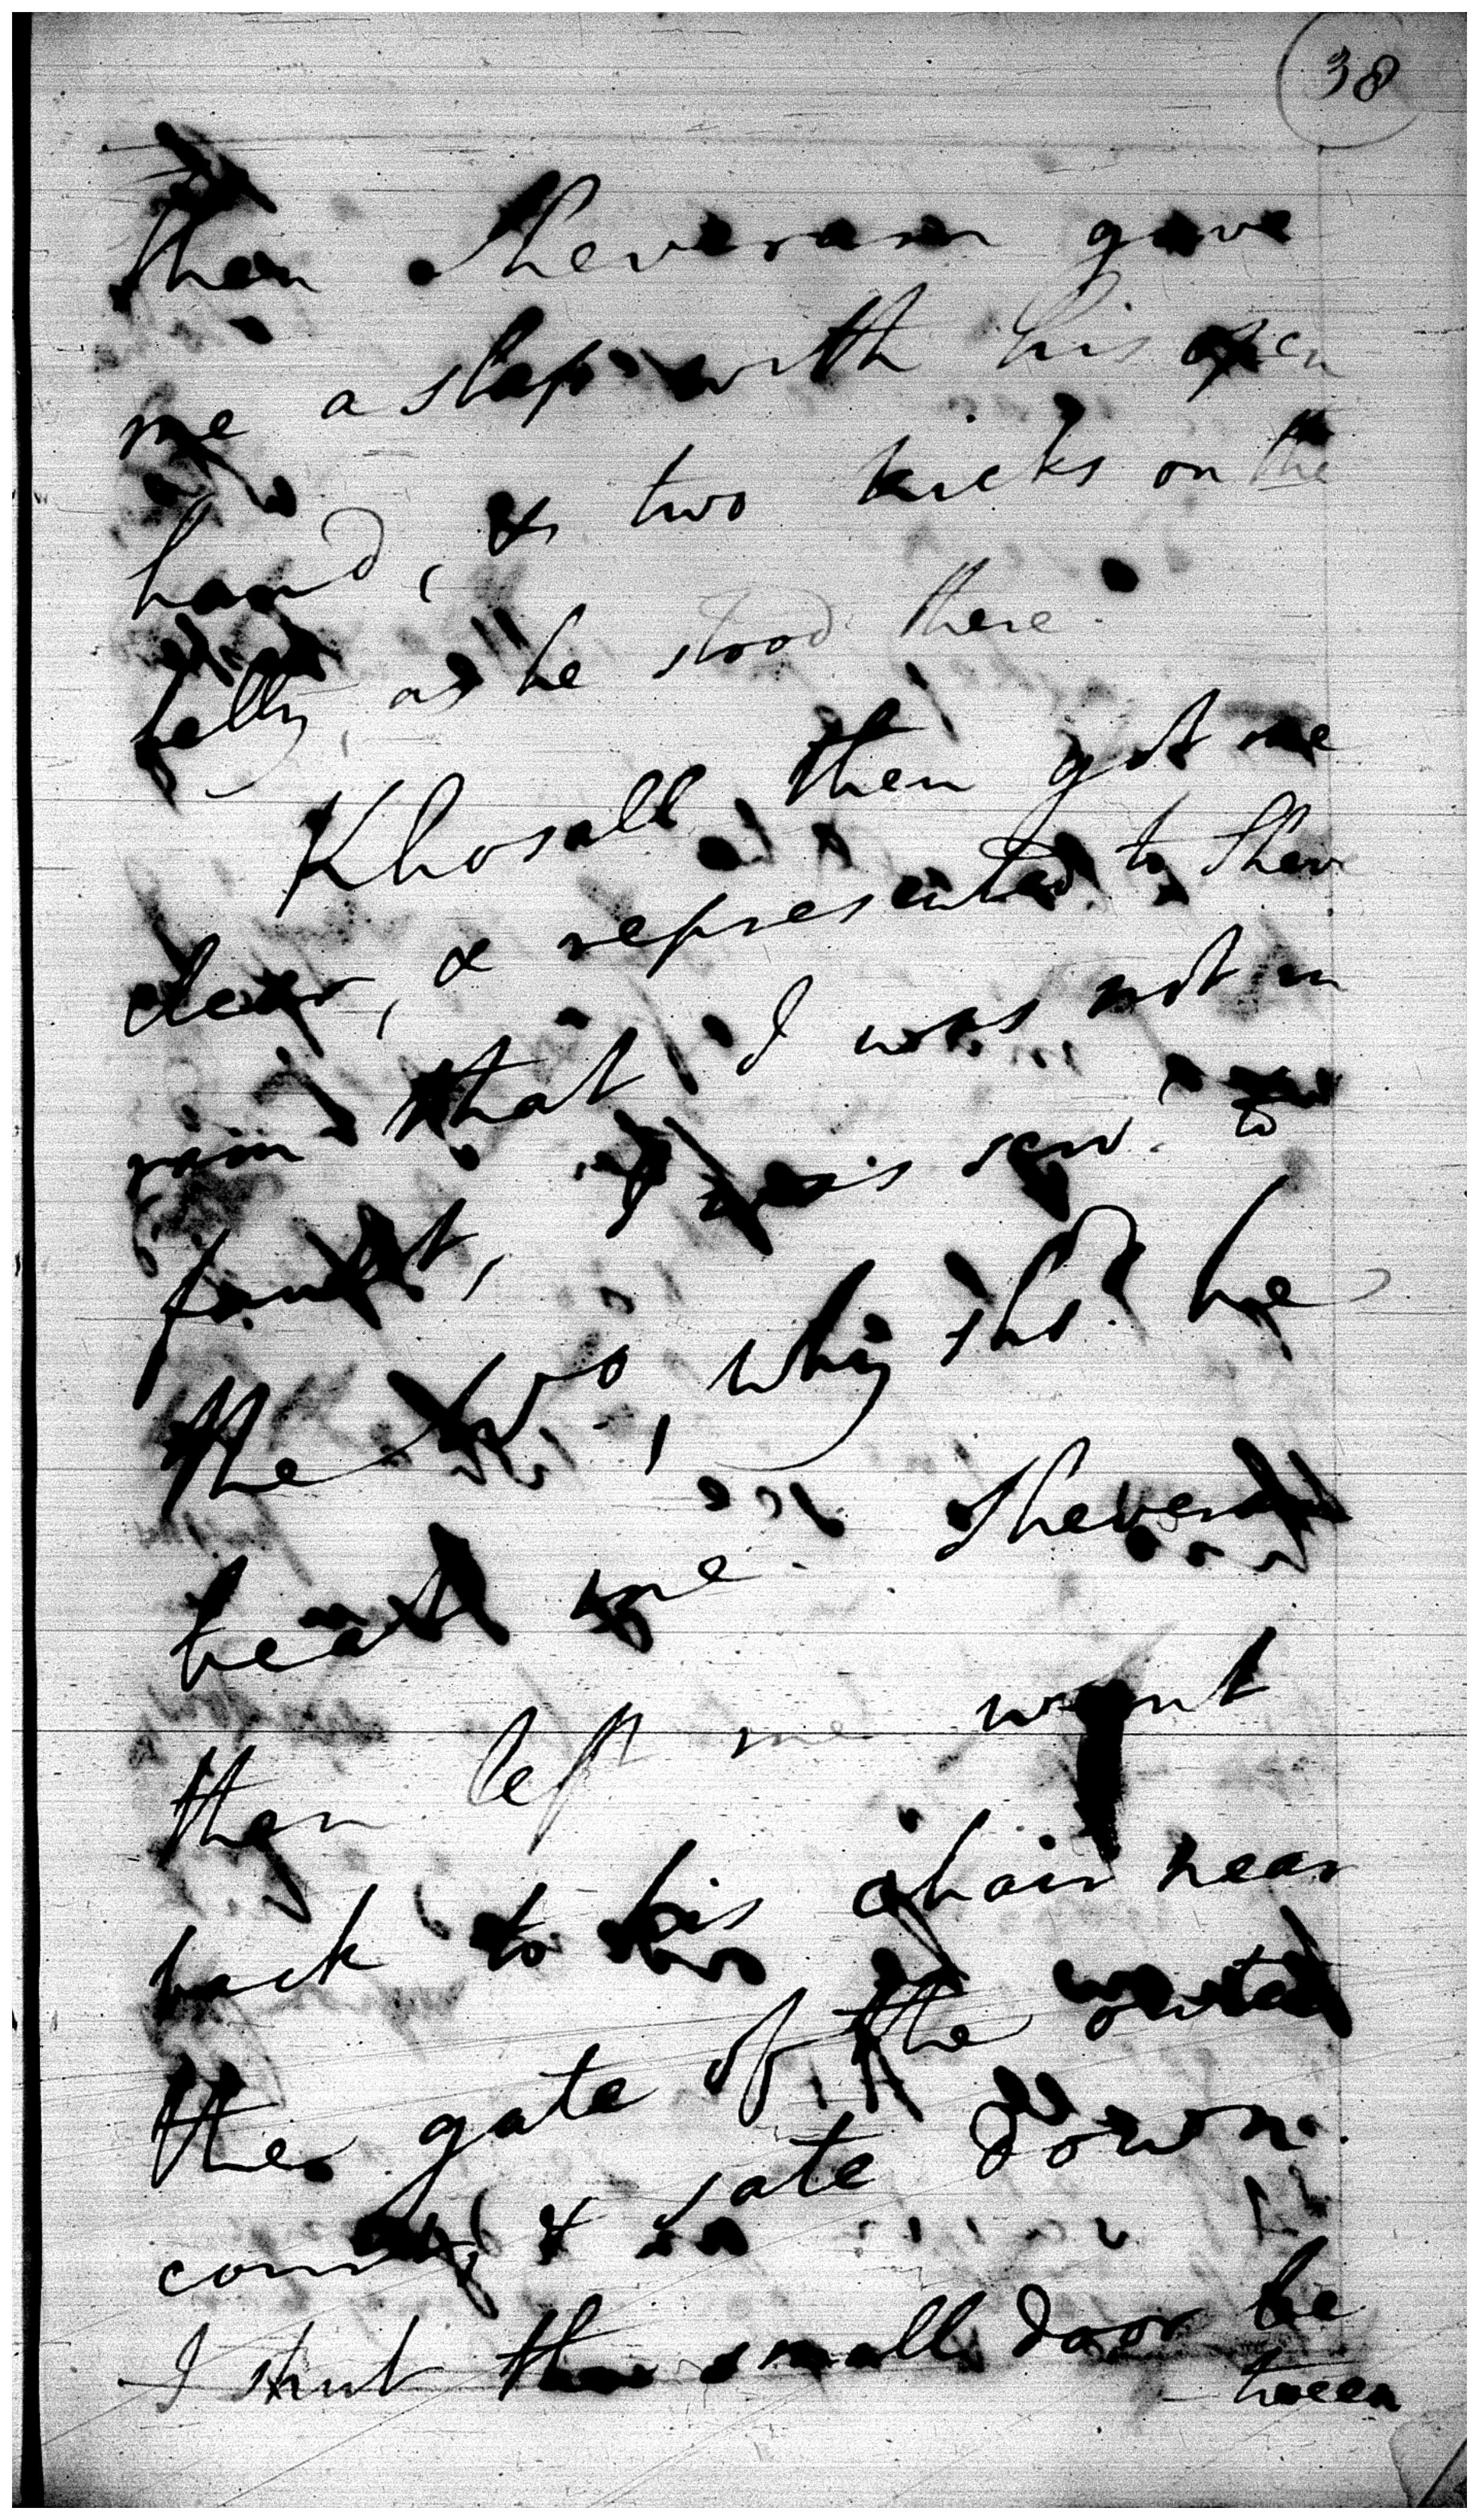 38
then Sheveram gave
me a slap with his open
hand, & two kicks on the
belly, as he stood there.
Khosall then got me
clear, & represented to Sheve
ram that I was not in
fault, is serv.t to
the two, why sho.d he
beat me. Sheveram
then left me went
back to his chair near
the gate of the outer
court, & sate down.
I shut the small door be
tween